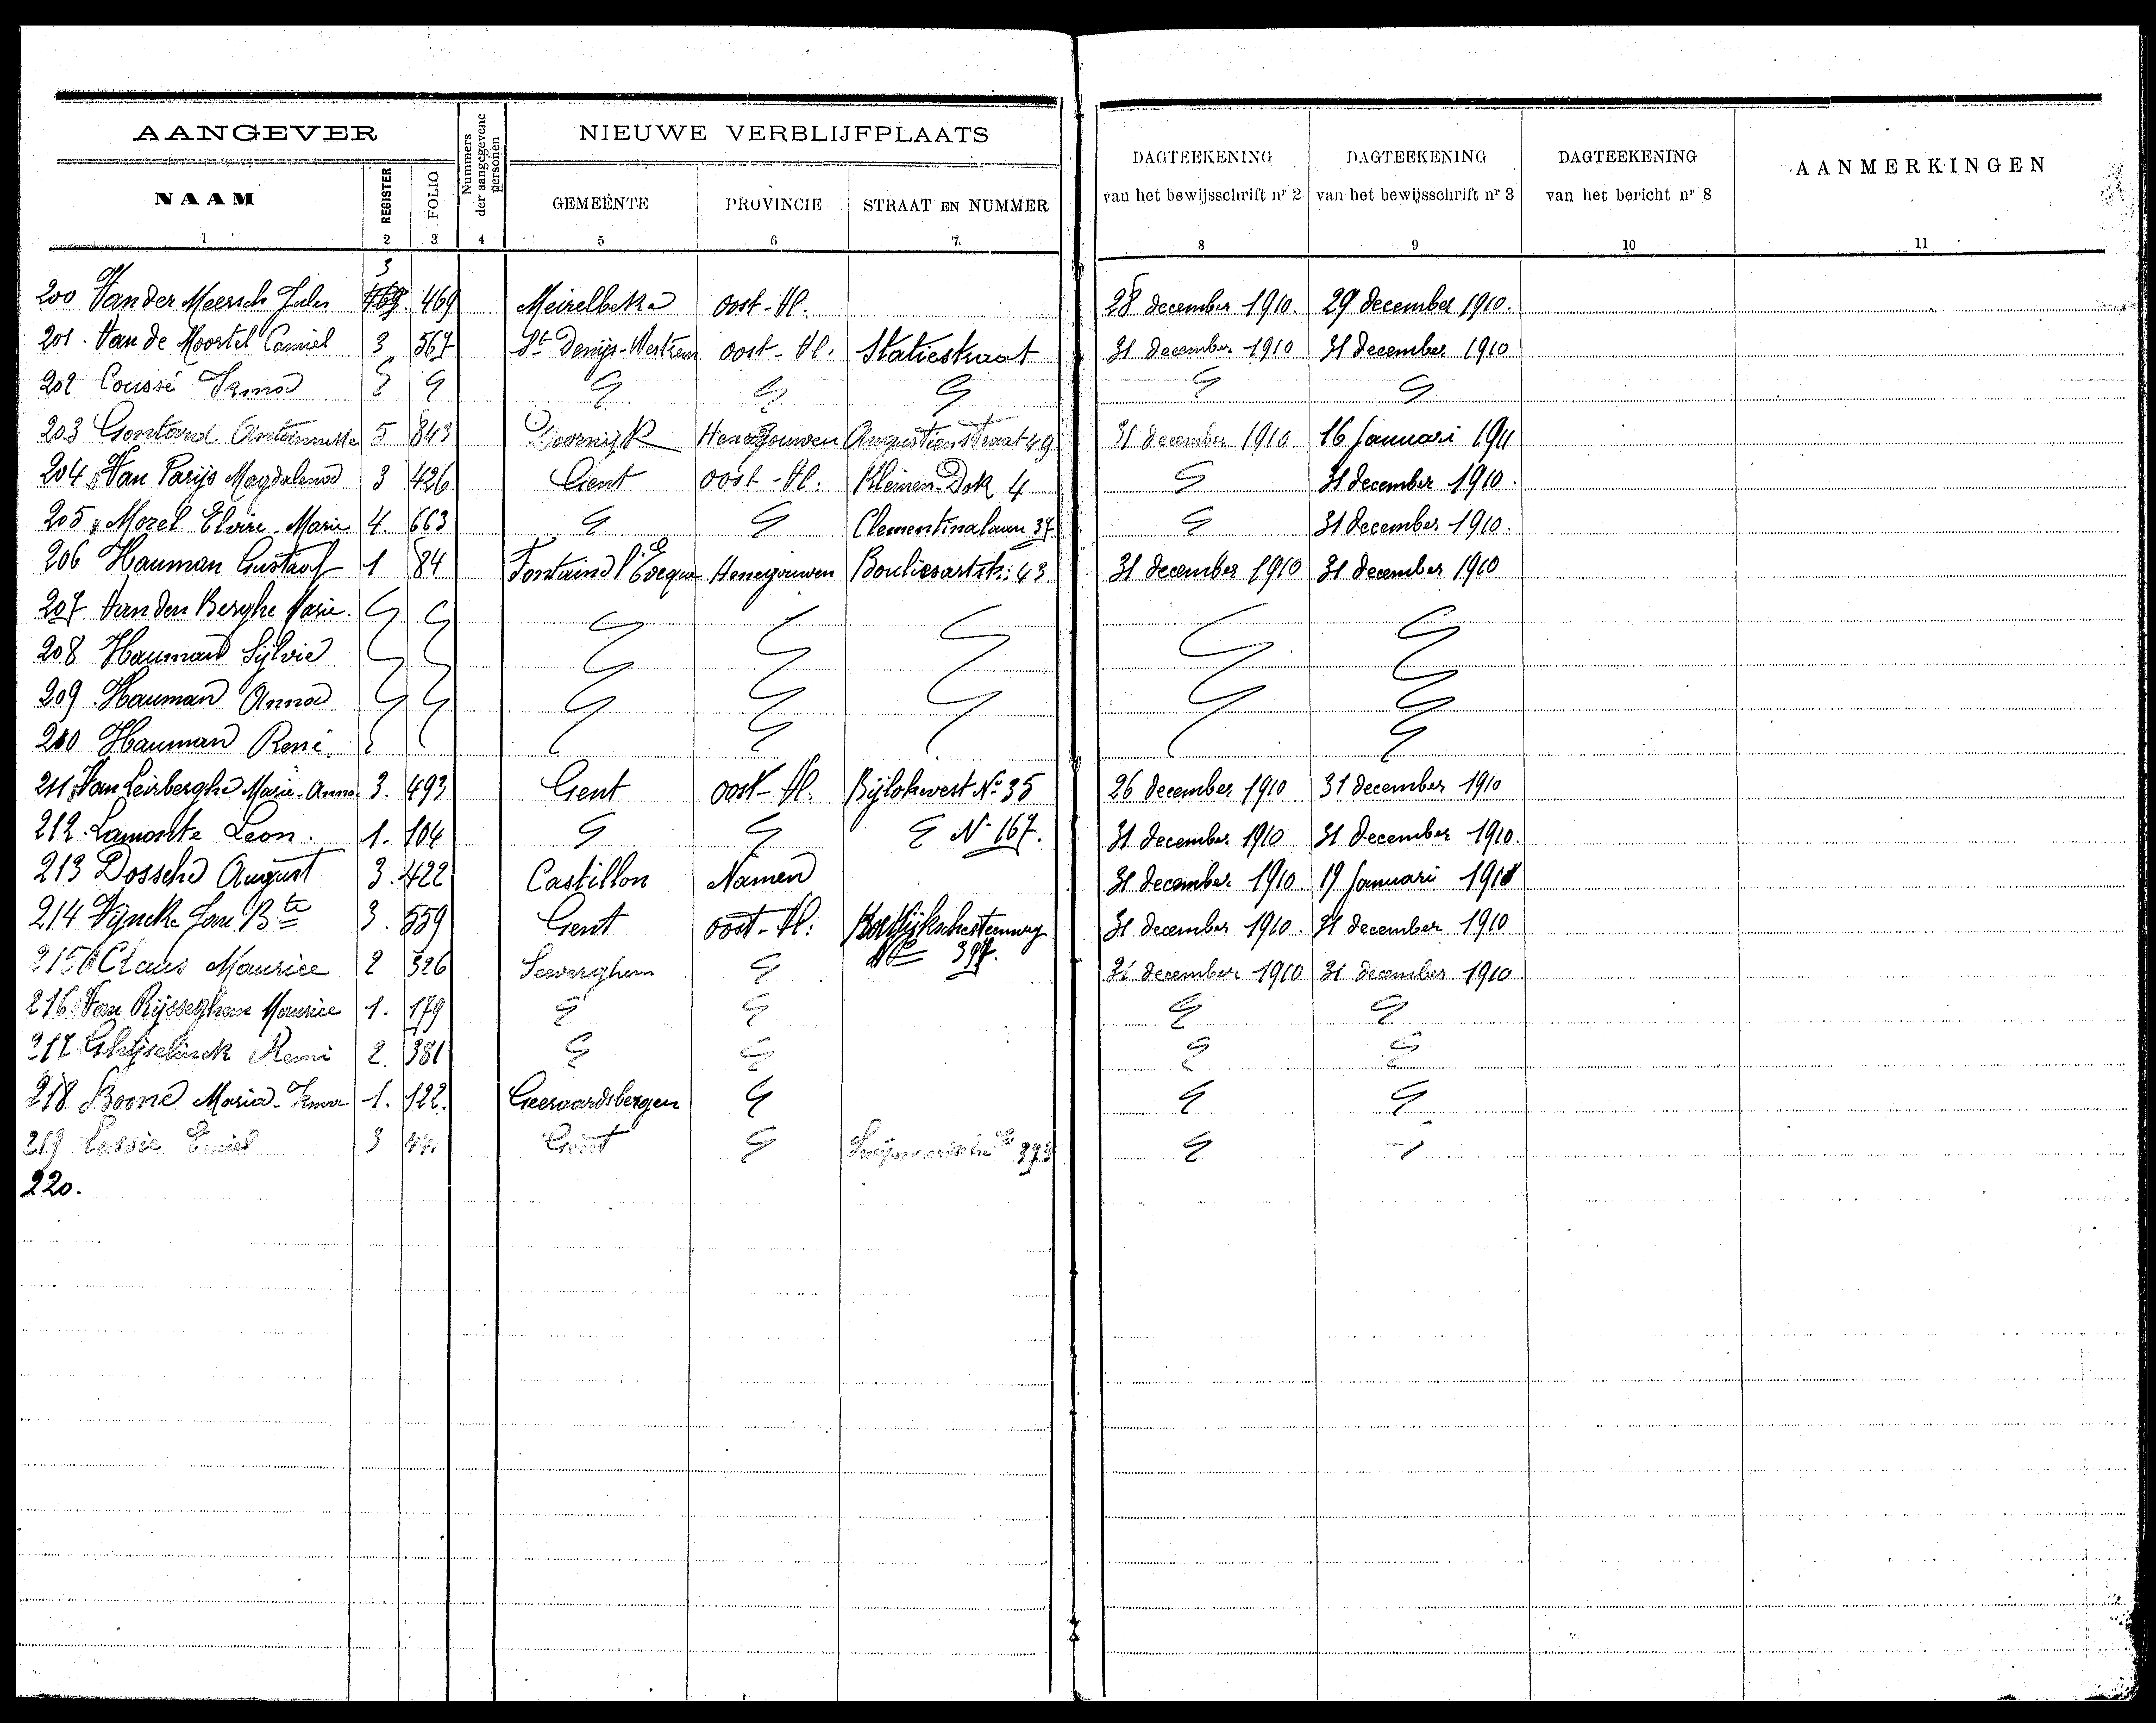 AANGEVER
Nummers der aangegevene personen
NIEUWE VERBLIJFPLAATS
DAGTEEKENING van het bewijsschrift nr 2
DAGTEEKENING van het bewijsschrift nr 3
DAGTEEKENING van het bericht nr 8
AANMERKINGEN
NAAM REGISTER FOLIO GEMEENTE PROVINCIE STRAAT EN NUMMER
1 2 3 4 5 6 7 8 9 10 11
3
200 Van der Meersch Jules 469 Meirelbeke Oost-Vl. 28 december 1910. 29 december 1910.
201. Van de Moortel Camiel 3 567 St Denijs-Westrem Oost-Vl. Statiestraat 31 december 1910 31 december 1910
202 Coussé Irma
203 Antoinette 5 843 Doornijk Henegouwen Augustienstraat 49 31 december 1910 16 Januari 1911
204 Van Parijs Magdalena 3 426 Gent Oost-Vl. Kleinen-Dok 4 31 december 1910.
205 Morel Elvire-Marie 4. 663 Clementinalaan 37 31 december 1910.
206 Hauman Gustaaf 1 84 Henegouwen 43 31 december 1910 31 december 1910
207 Van den Berghe Marie.
208 Hauman Sylvie
209 Hauman Anna
210 Hauman René.
211 Van Leirberghe Marie-Anna 3. 493 Gent Oost-Vl. Bijlokevest No 35 26 december 1910 31 december 1910
212. Leon. 1. 104 No 167. 31 december 1910 31 december 1910.
213 Dossche August 3. 422 Castillon Namen 31 december 1910. 19 Januari 1911
214 Vijncke Jan Bte 3. 559 Gent Oost-Vl. 31 december 1910. 31 december 1910
No 397.
215 Claus Maurice 2 326 Seeverghem 31 december 1910 31 december 1910
216. Van Rijsseghem Maurice 1. 179
217 Ghijselinck Remi 2. 381
218 Boone Maria-Irma 1. 122. Geeraardsbergen
219 Emiel 3 Gent
220.